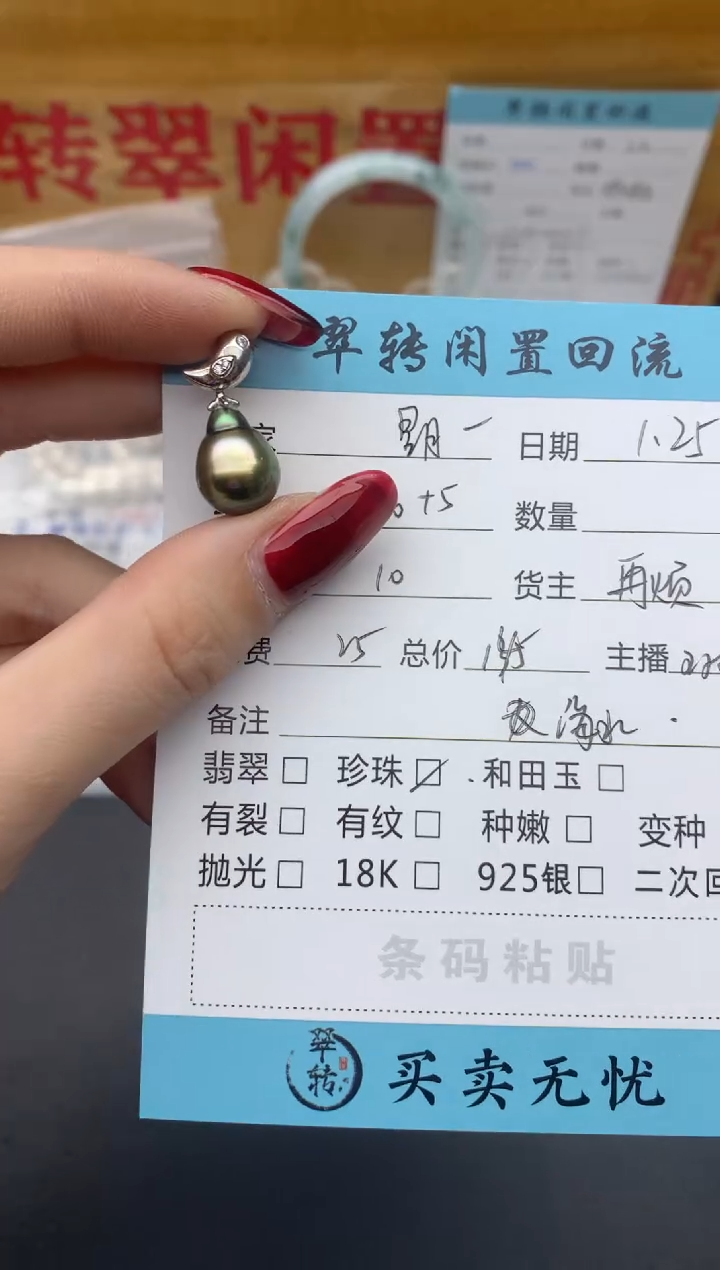 转翠闲置
翠转闲置回流
家 星期一 日期 1.25
+5 数量
10 货主 再烦
费 25 总价 主播
备注 海水.
翡翠□ 珍珠☑ 和田玉□
有裂□ 有纹□ 种嫩□ 变种
抛光□ 18K□ 925银□ 二次回
条码粘贴
翠转 买卖无忧